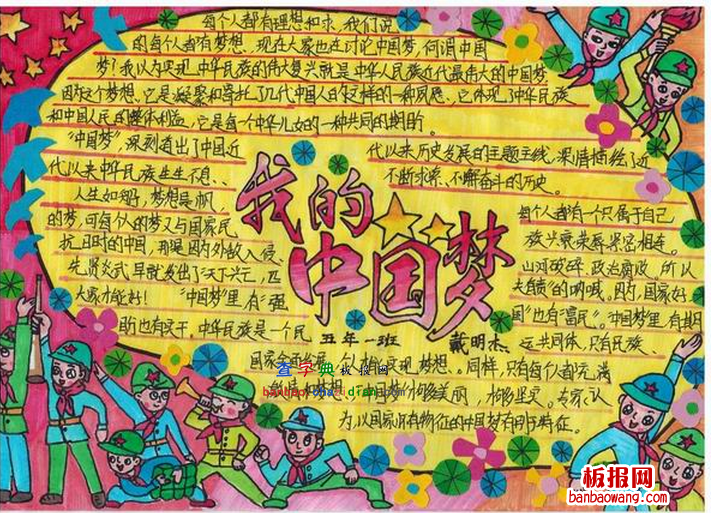 每个人都有理想和求，我们说
的每个人都有梦想。现在大家也在讨论中国梦，何谓中国
梦？我以为实现中华民族的伟大复兴就是中华人民族近代最伟大的中国梦
因为这个梦想、它是凝聚和寄托了几代中国人的这样的一种夙愿、它体现了中华民族
和中国人民的整体利益，它是每个中华儿女的一种共同的期盼。
"中国梦"，深刻道出了中国近
代以来历史发展的主题主线，深情描绘了近
代以来中华民族生生不息、
不断求索、不懈奋斗的历史。
人生如
梦想是帆，
每个人都有一个只属于自己
的梦，可每个人的梦又与国家民
族兴衰荣辱紧密相连。
我的
中国梦
抗日时的中国，那是因为外敌入侵
山河破碎、政治腐败，所以
先贤炎武早就发出了天下兴亡，匹
夫有责"的呐喊。因为，国家好
大家才能好！ "中国梦"里，有"强
国"也有"富民"。"中国梦"里，有期
盼也有实干，中华民族是一个民
运共同体，只有民族、
五年一班 戴明杰
国家
个人才能实现梦想。同样，只有每个人都充满
中国梦
够美丽，
够坚定。专家认
为，以国家
为特征的中国梦有
特征。
查字典 板报网
banbao.chazidian.com
板报网
banbaowang.com